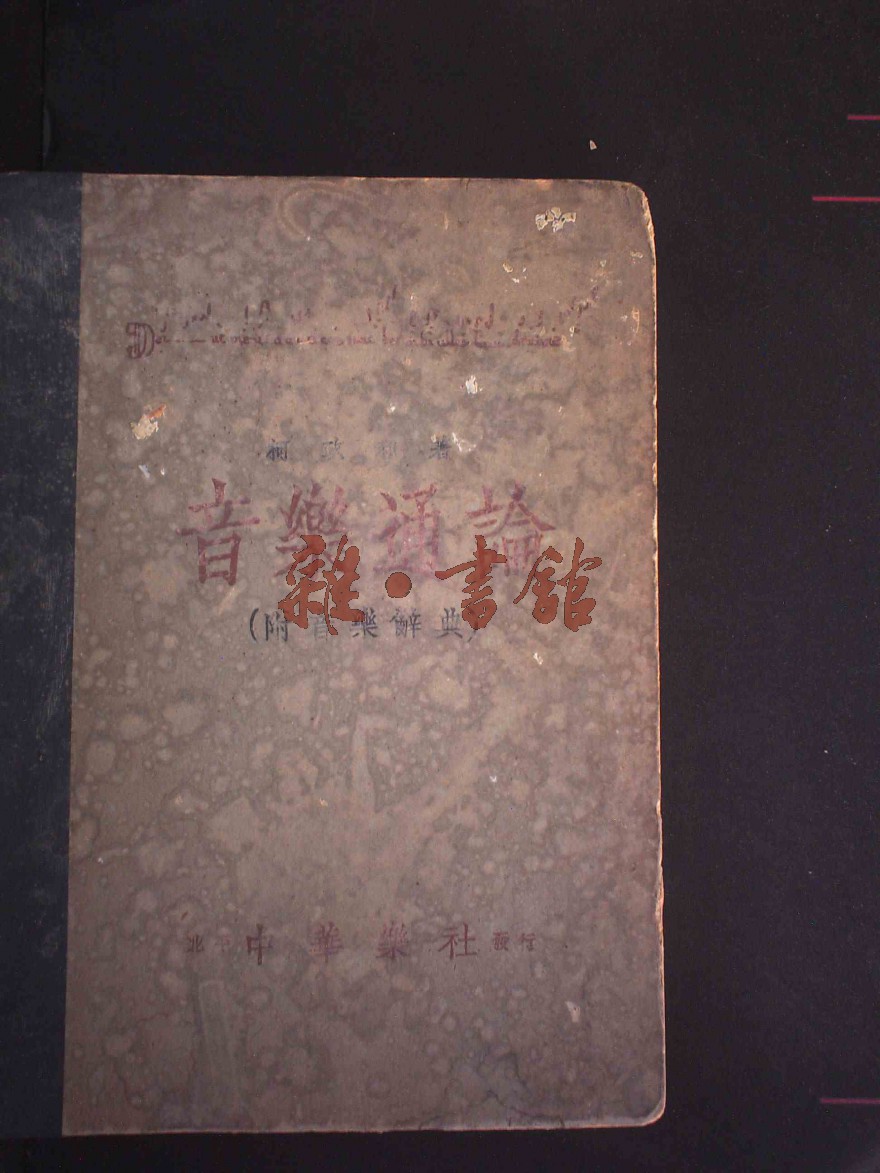 柯政和著
音樂通論
雜·書館
(附音樂辭典)
北平中華樂社發行